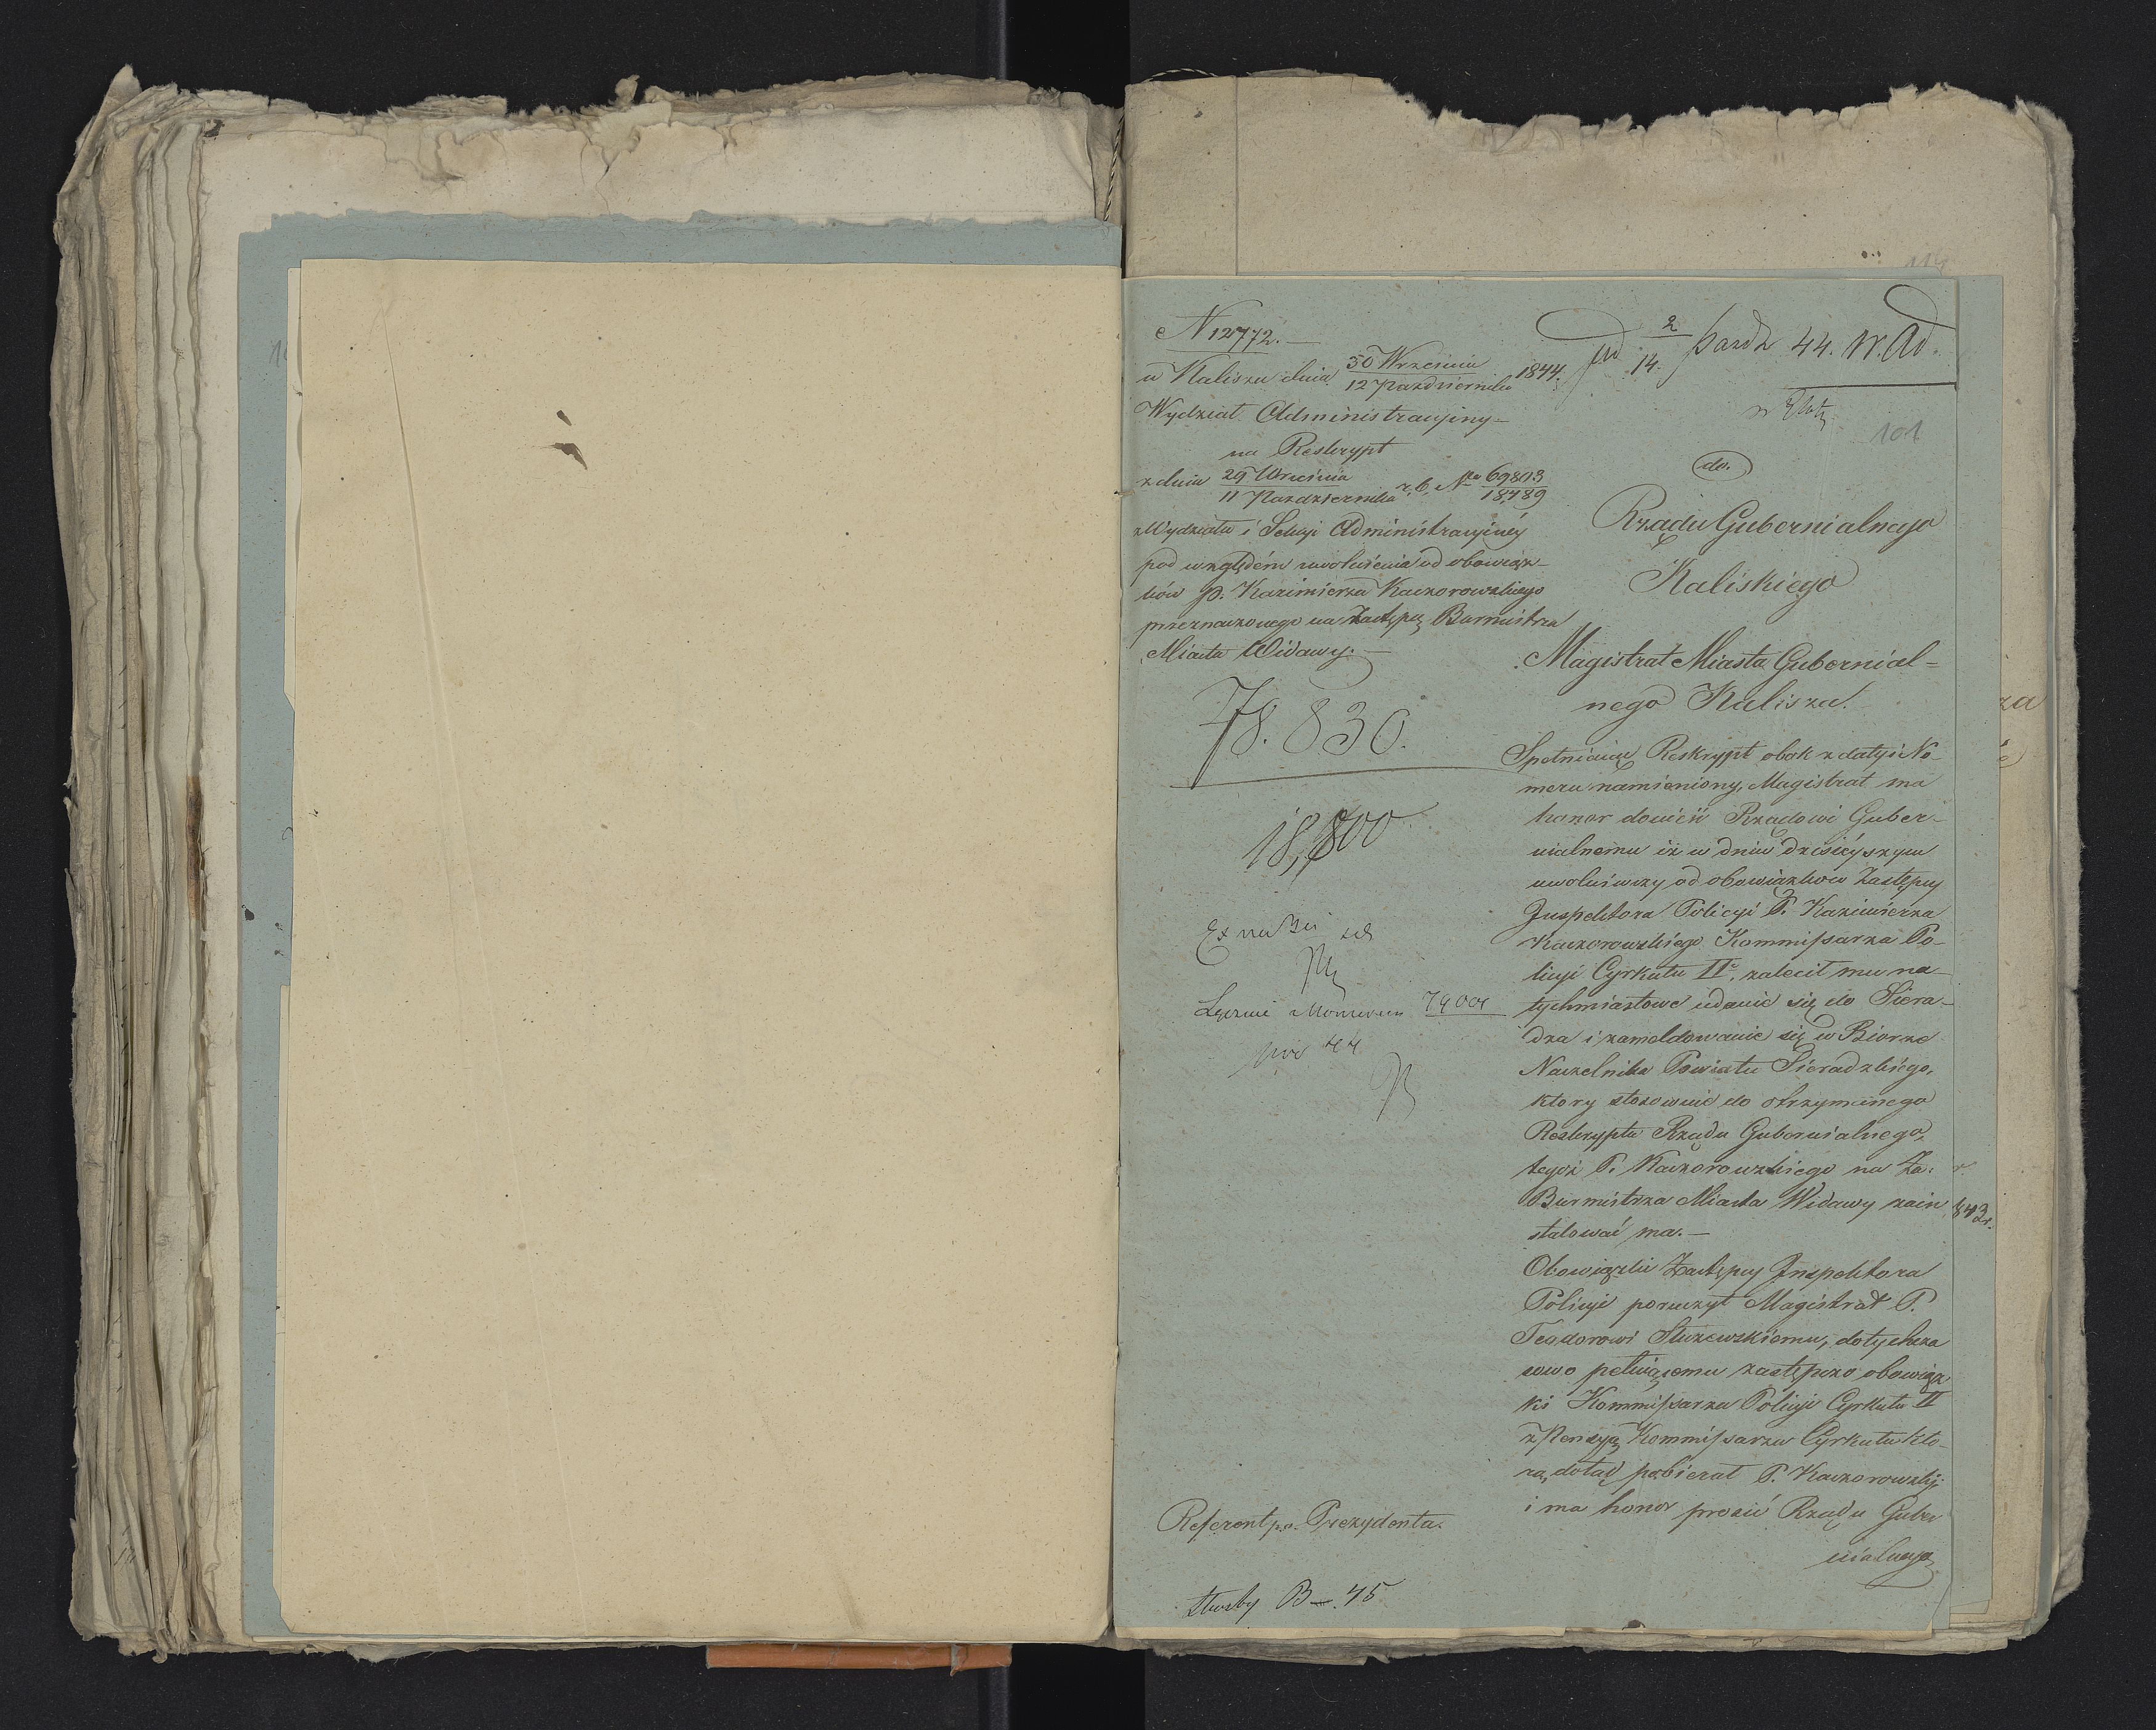 N 12772. —
w Kaliszu dnia 30 Września / 12 Października 1844.
Wydział Administracyiny —
na Reskrypt
z dnia 29 Września / 11 Października r. b. No 69803 / 18789
z Wydziału i Sekcyi Administracyiney
pod względem uwolnienia od obowiąz-
ków P. Kazimierza Kaczorowskiego
przeznaczonego na Zastępcę Burmistrza
Miasta Widawy. —
78.830.
18,800
Łącznie 79004
44
Referent p.o. Prezydenta.
Służby B — 45
2 / 14. Paźdz 44. W. Ad.
101
do.
Rządu Gubernialnego
Kaliskiego
Magistrat Miasta Gubernial=
nego Kalisza.
Spełniaiąc Reskrypt obok z daty i No-
meru namieniony, Magistrat ma
honor donieść Rządowi Guber-
nialnemu iż w dniu dzisieyszym
uwolniwszy od obowiązków Zastępcy
Inspektora Policyi P. Kazimierza
Kaczorowskiego Kommissarza Po-
licyi Cyrkułu II°, zalecił mu na-
tychmiastowe udanie się do Siera-
dza i zameldowanie się w Biorze
Naczelnika Powiatu Sieradzkiego,
ktory stosownie do otrzymanego
Reskryptu Rządu Gubernialnego,
tegoż P. Kaczorowskiego na Za.
Burmistrza Miasta Widawy zain
stalować ma. —
Obowiązki Zastępcy Inspektora
Policyi poruczył Magistrat P.
Teodorowi Służewskiemu, dotychcza
sowo pełniącemu zastępczo obowiąz
ki Kommissarza Policyi Cyrkułu II
z Pensyą Kommissarza Cyrkułu któ-
rą dotąd pobierał P. Kaczorowski
i ma honor prosić Rządu Guber
nialnego